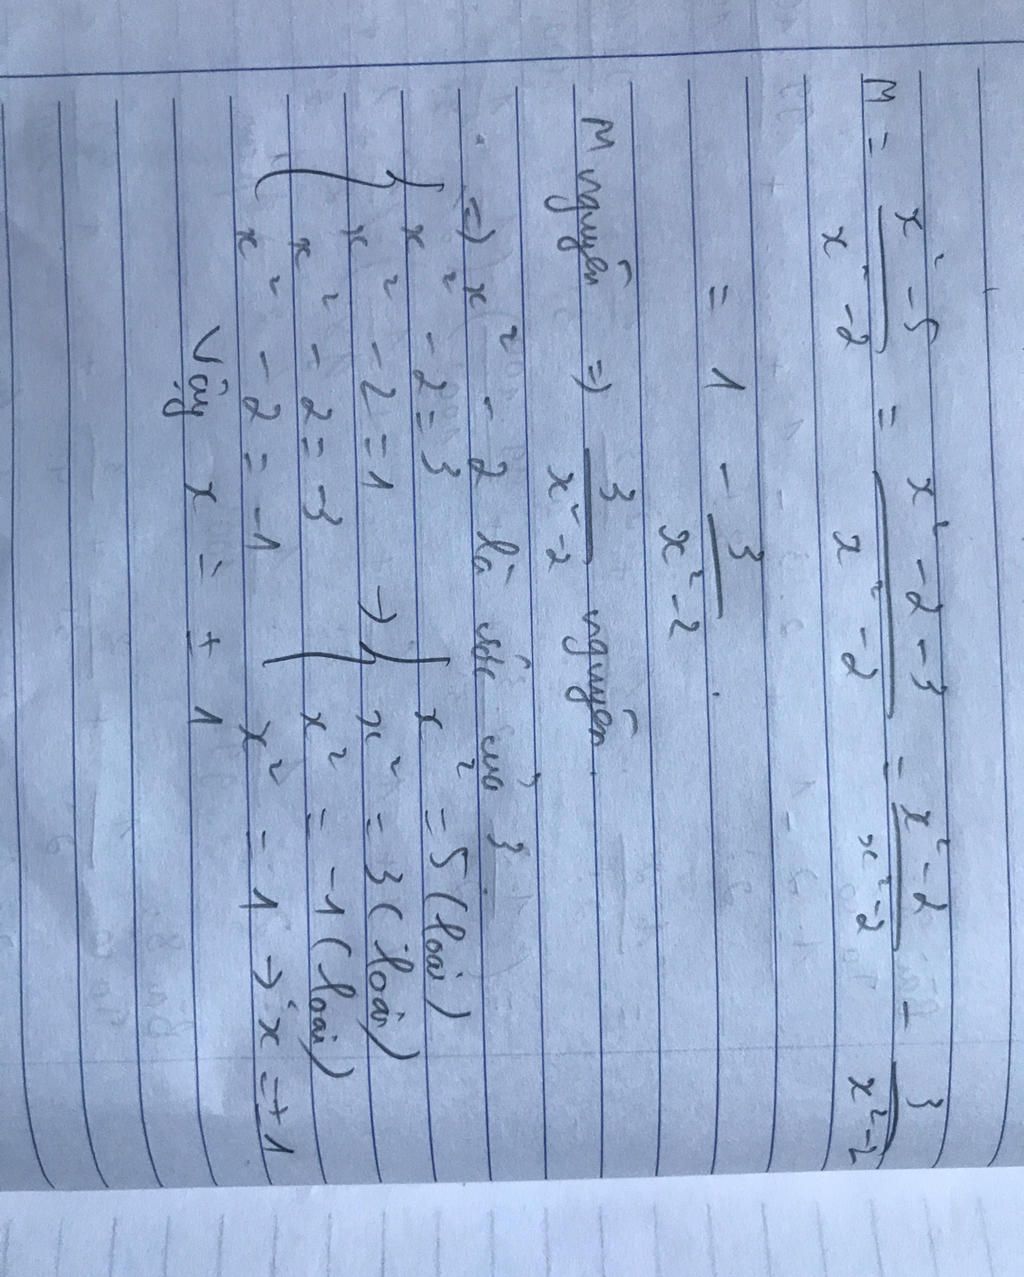 M = \frac{x² - 5}{x² - 2} = \frac{x² - 2 - 3}{x² - 2} = \frac{x² - 2}{x² - 2} - \frac{3}{x² - 2}
= 1 - \frac{3}{x² - 2}
M nguyên => \frac{3}{x² - 2} nguyên.
=> x² - 2 là ước của 3
{ x² - 2 = 3 → { x² = 5 (loại)
x² - 2 = 1 x² = 3 (loại)
x² - 2 = -3 x² = -1 (loại)
x² - 2 = -1 x² = 1 → x = ±1
Vậy x = ±1